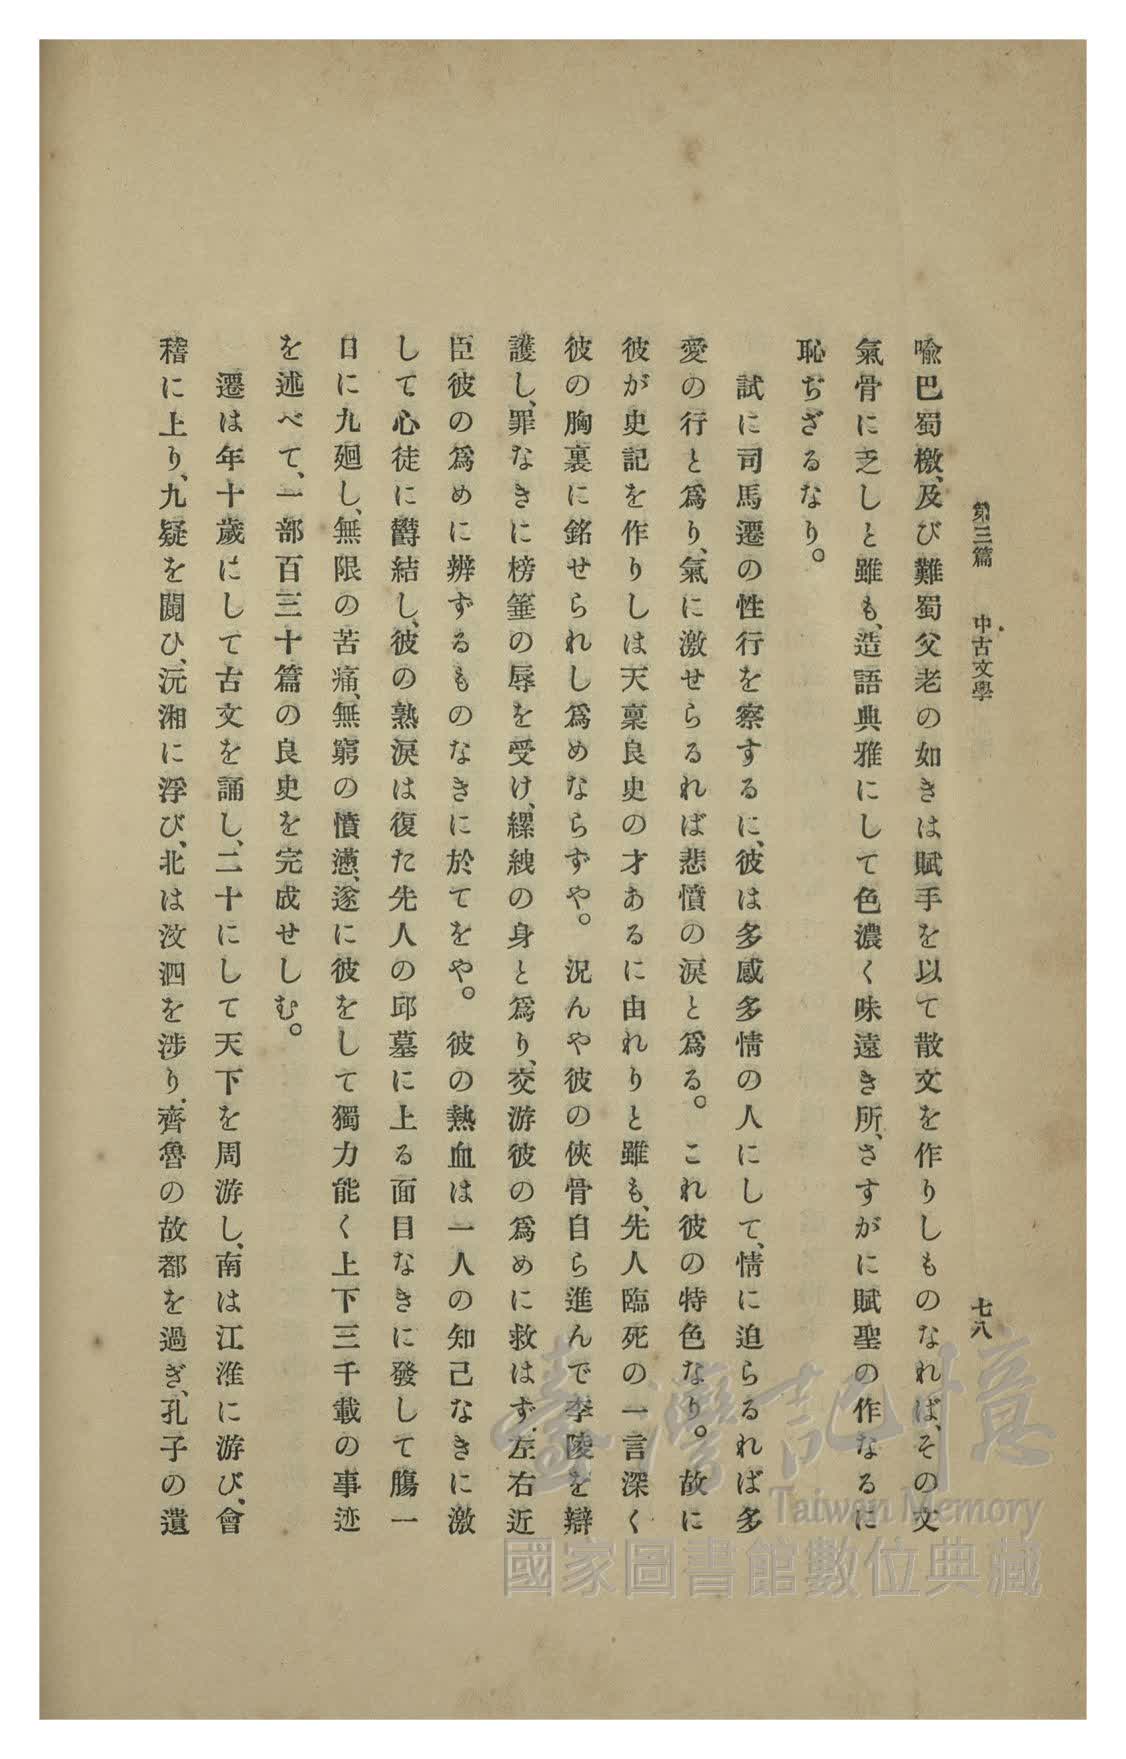 第三篇　中古文學　七八
喩巴蜀檄、及び難蜀父老の如きは賦手を以て散文を作りしものなれば、その文
氣骨に乏しと雖も、造語典雅にして色濃く味遠き所、さすがに賦聖の作なるに
恥ぢざるなり。
試に司馬遷の性行を察するに、彼は多感多情の人にして、情に迫らるれば多
愛の行と爲り、氣に激せらるれば悲憤の涙と爲る。これ彼の特色なり。故に
彼が史記を作りしは天稟良史の才あるに由れりと雖も、先人臨死の一言深く
彼の胸裏に銘せられし爲めならずや。況んや彼の俠骨自ら進んで李陵を辯
護し、罪なきに榜箠の辱を受け、縲絏の身と爲り、交游彼の爲めに救はず、左右近
臣彼の爲めに辨ずるものなきに於てをや。彼の熱血は一人の知己なきに激
して心徒に欝結し、彼の熟涙は復た先人の邱墓に上る面目なきに發して膓一
日に九廻し、無限の苦痛、無窮の憤懣、遂に彼をして獨力能く上下三千載の事迹
を述べて、一部百三十篇の良史を完成せしむ。
遷は年十歲にして古文を誦し、二十にして天下を周游し、南は江淮に游び、會
稽に上り、九疑を闚ひ、沅湘に浮び、北は汶泗を涉り、齊魯の故都を過ぎ、孔子の遺
臺灣記憶
Taiwan Memory
國家圖書館數位典藏